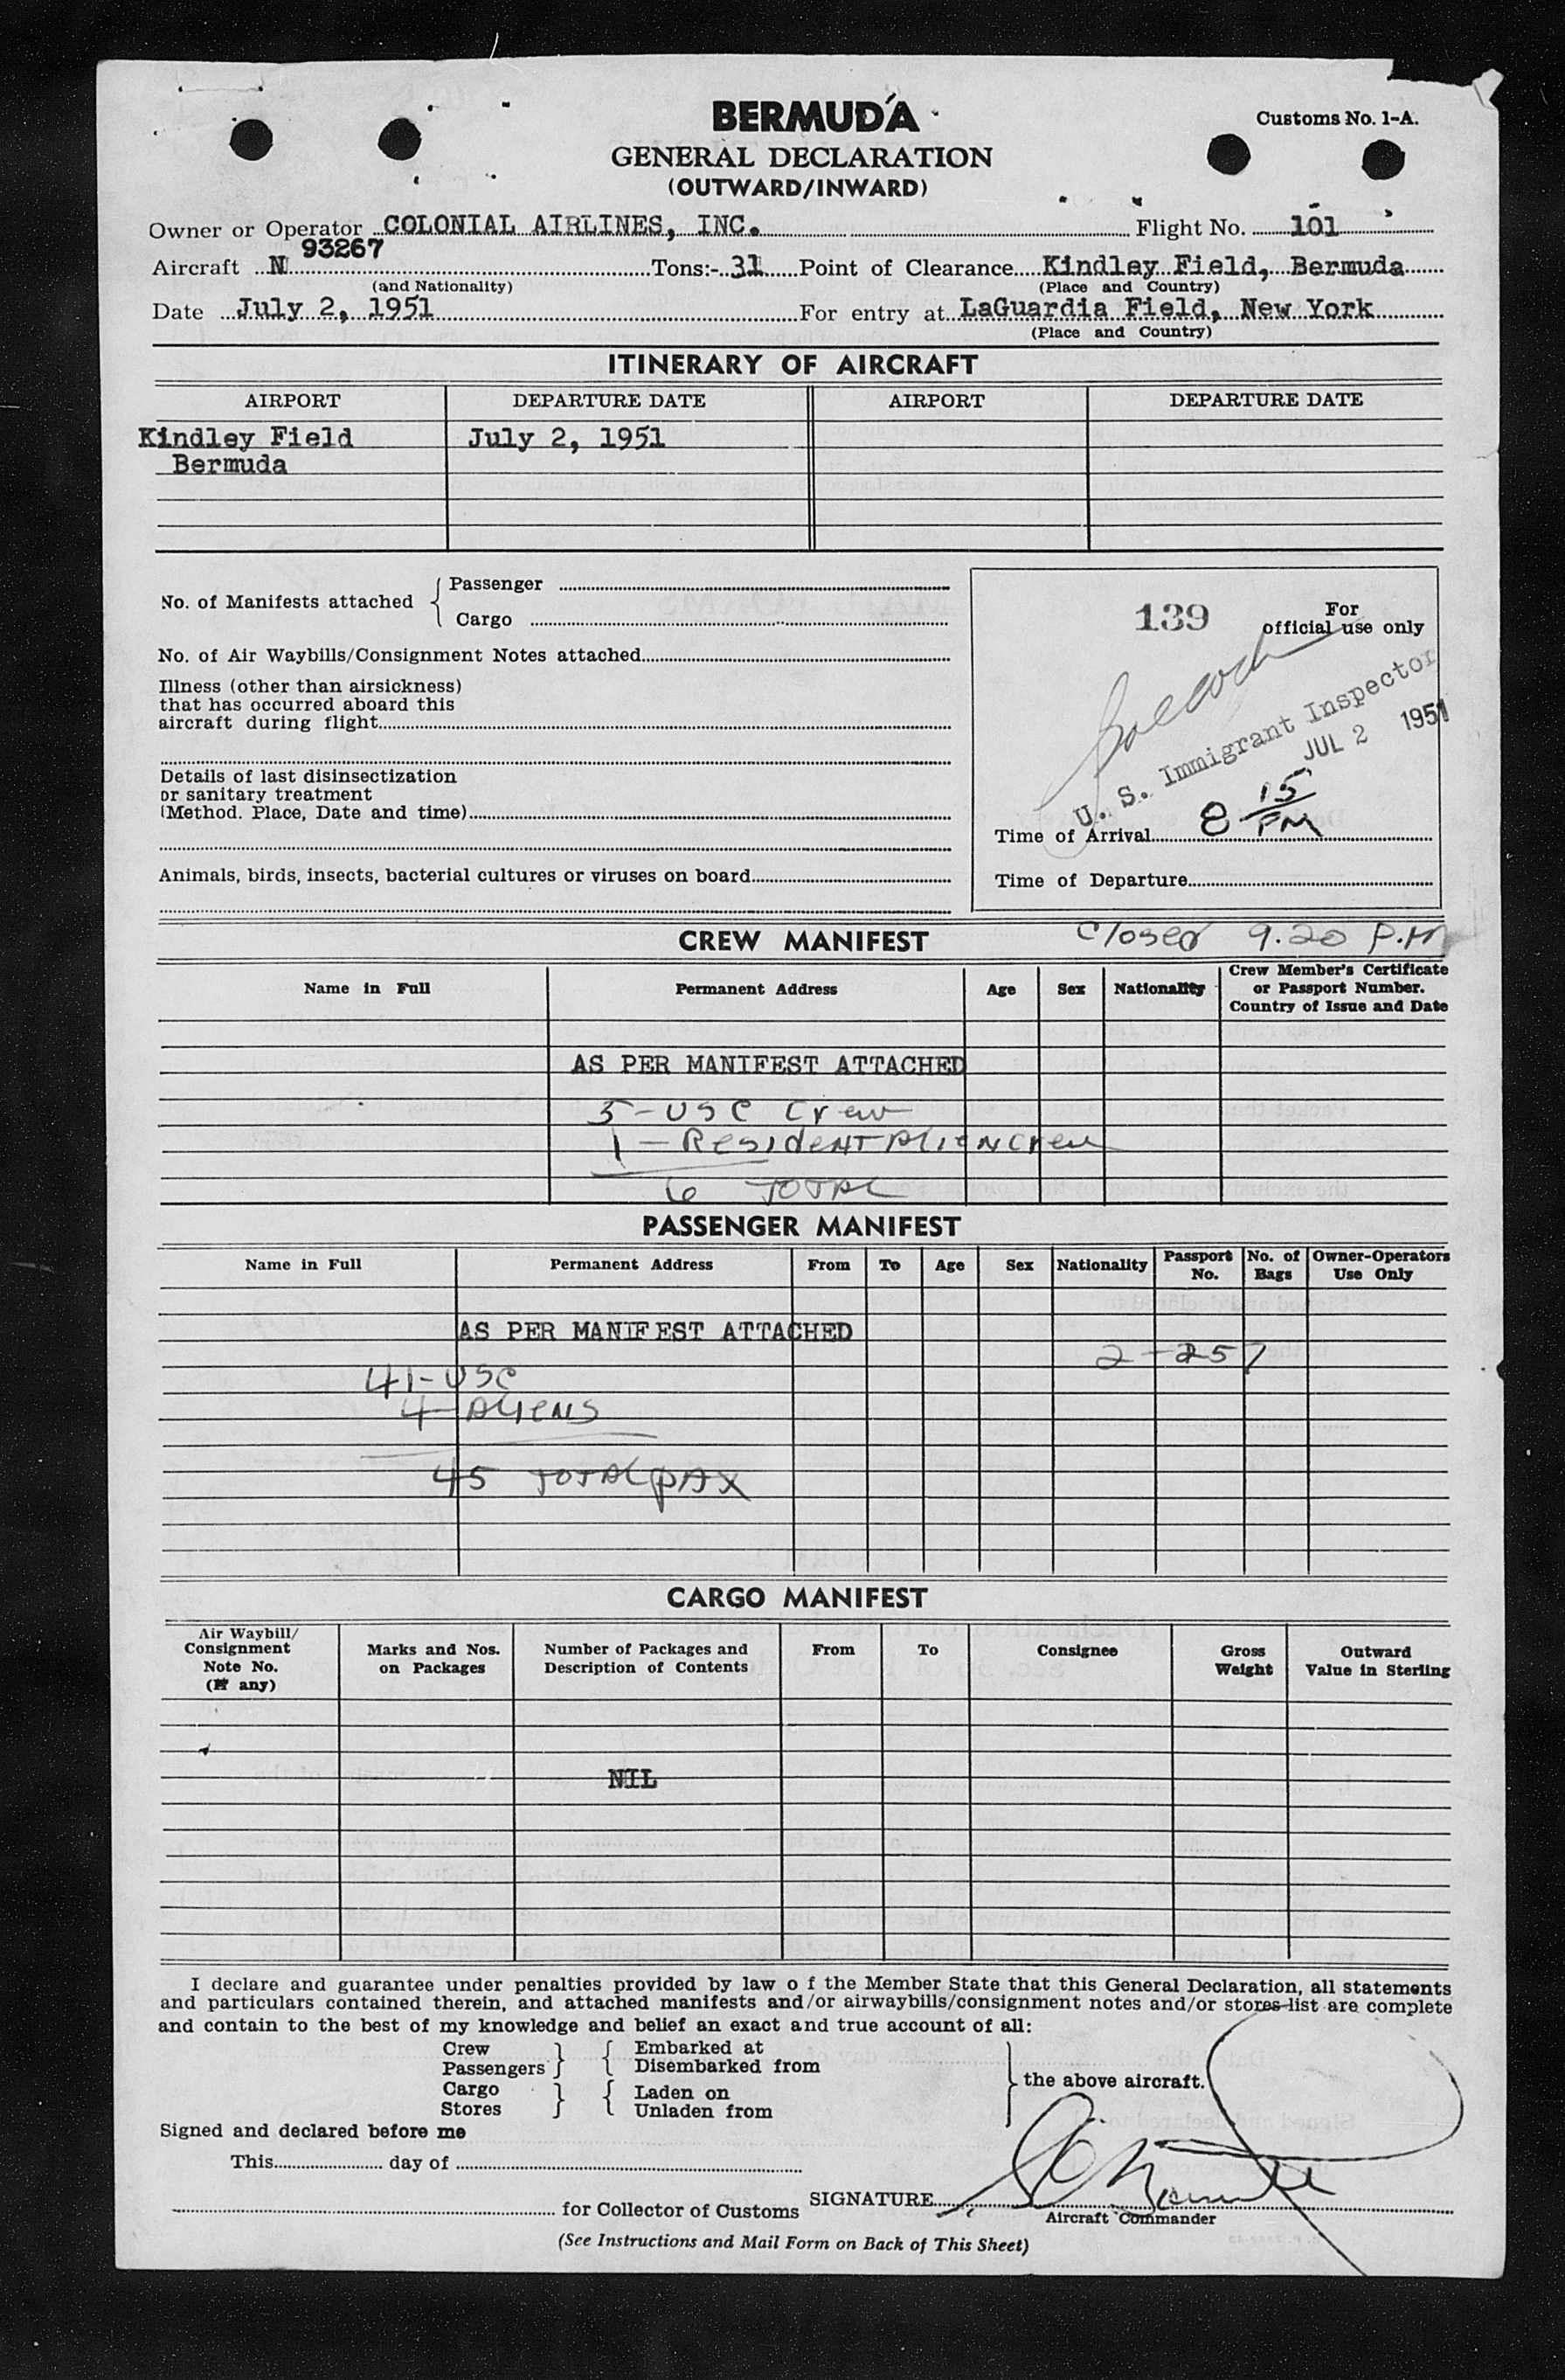 BERMUDA
Customs No. 1-A.
GENERAL DECLARATION
(OUTWARD/INWARD)
Owner or Operator COLONIAL AIRLINES, INC. Flight No. 101
93267
Aircraft N Tons:- 31 Point of Clearance Kindley Field, Bermuda
(and Nationality) (Place and Country)
Date July 2, 1951 For entry at LaGuardia Field, New York
(Place and Country)
ITINERARY OF AIRCRAFT
AIRPORT DEPARTURE DATE AIRPORT DEPARTURE DATE
Kindley Field July 2, 1951
Bermuda
No. of Manifests attached { Passenger
Cargo
No. of Air Waybills/Consignment Notes attached
Illness (other than airsickness)
that has occurred aboard this
aircraft during flight
Details of last disinsectization
or sanitary treatment
(Method. Place, Date and time)
Animals, birds, insects, bacterial cultures or viruses on board
139 For
official use only
U. S. Immigrant Inspector
JUL 2 1951
Time of Arrival 8 15 PM
Time of Departure
CREW MANIFEST
Closed 9.20 P.M
Name in Full Permanent Address Age Sex Nationality Crew Member's Certificate
or Passport Number.
Country of Issue and Date
AS PER MANIFEST ATTACHED
5 - USC Crew
1 - Resident Alien Crew
6 TOTAL
PASSENGER MANIFEST
Name in Full Permanent Address From To Age Sex Nationality Passport No. No. of Bags Owner-Operators Use Only
AS PER MANIFEST ATTACHED
2-257
41-USC
4 Aliens
45 TOTAL PAX
CARGO MANIFEST
Air Waybill/
Consignment
Note No.
(If any)
Marks and Nos.
on Packages
Number of Packages and
Description of Contents
From To Consignee
Gross
Weight
Outward
Value in Sterling
NIL
I declare and guarantee under penalties provided by law o f the Member State that this General Declaration, all statements
and particulars contained therein, and attached manifests and/or airwaybills/consignment notes and/or stores-list are complete
and contain to the best of my knowledge and belief an exact and true account of all:
Crew } { Embarked at
Passengers } { Disembarked from
the above aircraft.
Cargo } { Laden on
Stores } { Unladen from
Signed and declared before me
This day of
for Collector of Customs SIGNATURE
Aircraft Commander
(See Instructions and Mail Form on Back of This Sheet)